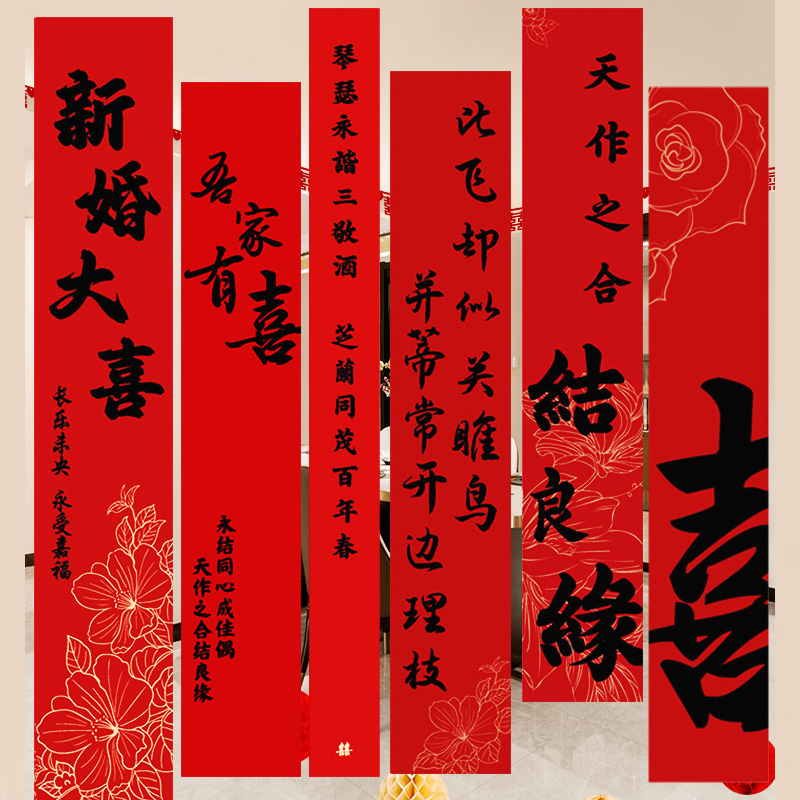 新婚大喜
长乐未央 永受嘉福
吾家有喜
永结同心成佳偶
天作之合结良缘
琴瑟永諧三敬酒 芝蘭同茂百年春
囍
比飞却似关雎鸟
并蒂常开边理枝
天作之合
結良緣
喜